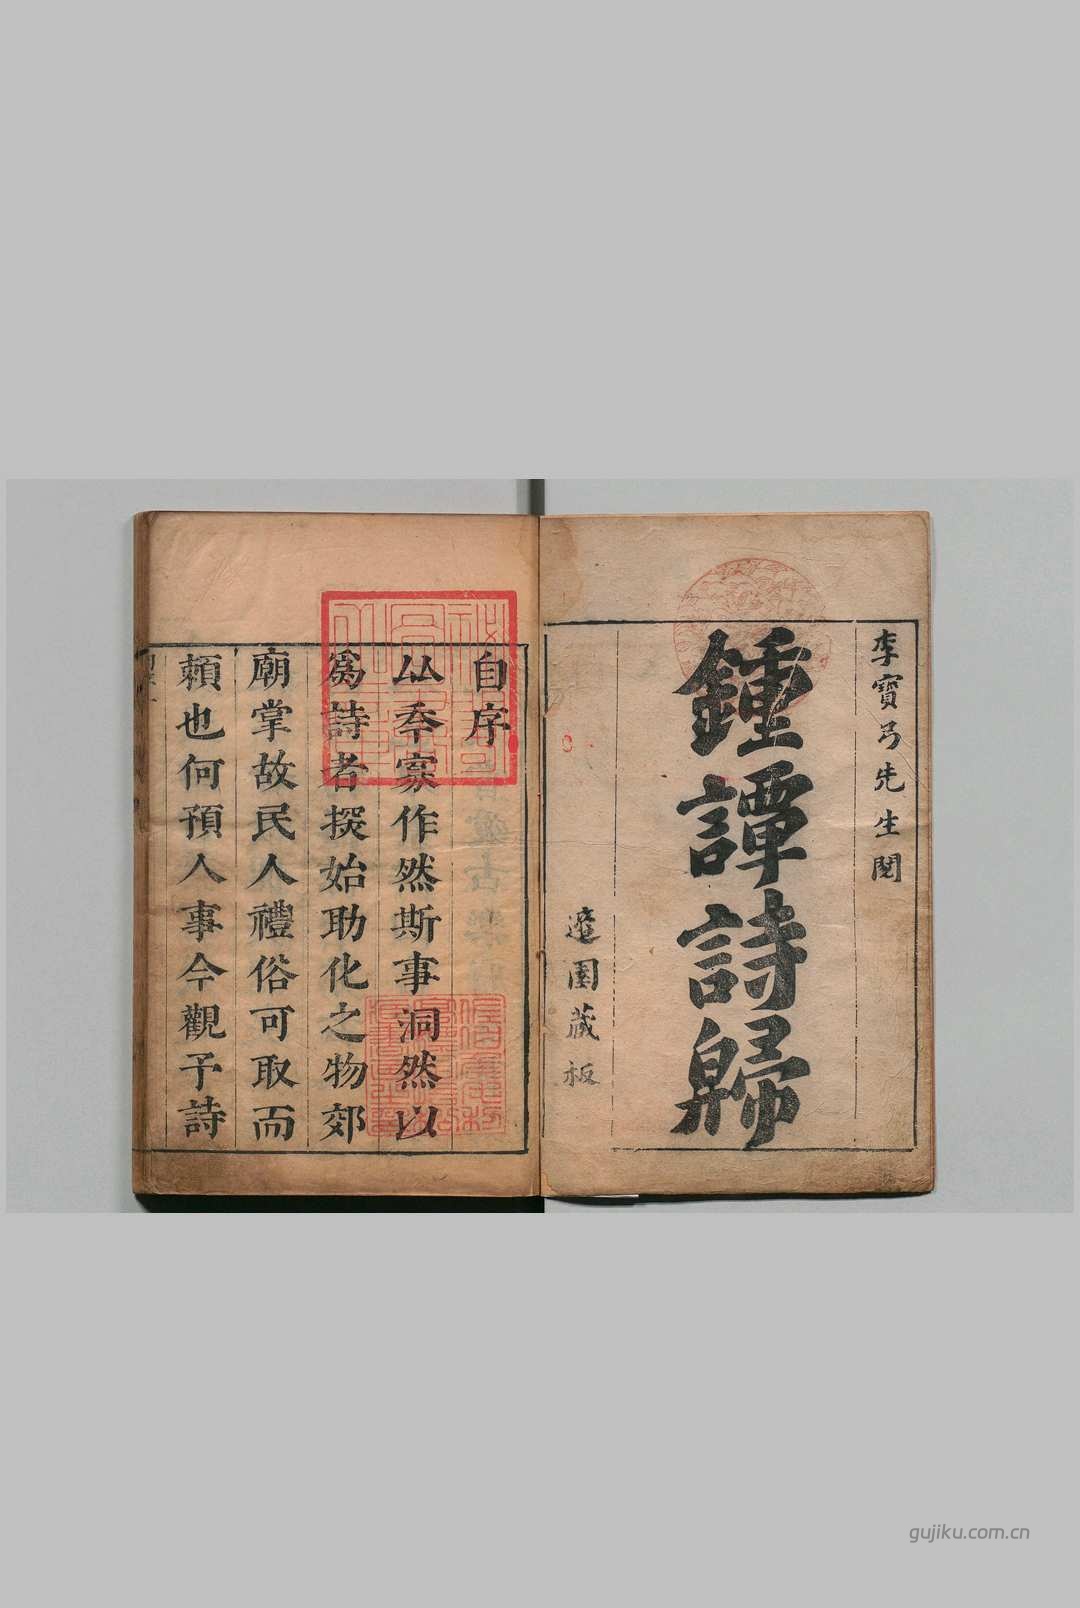 李寶弓先生閱
鍾譚詩歸
園藏板
自序
作然斯事洞然以
爲詩者撰始助化之物郊
廟掌故民人禮俗可取而
賴也何預人事今觀予詩
gujiku.com.cn